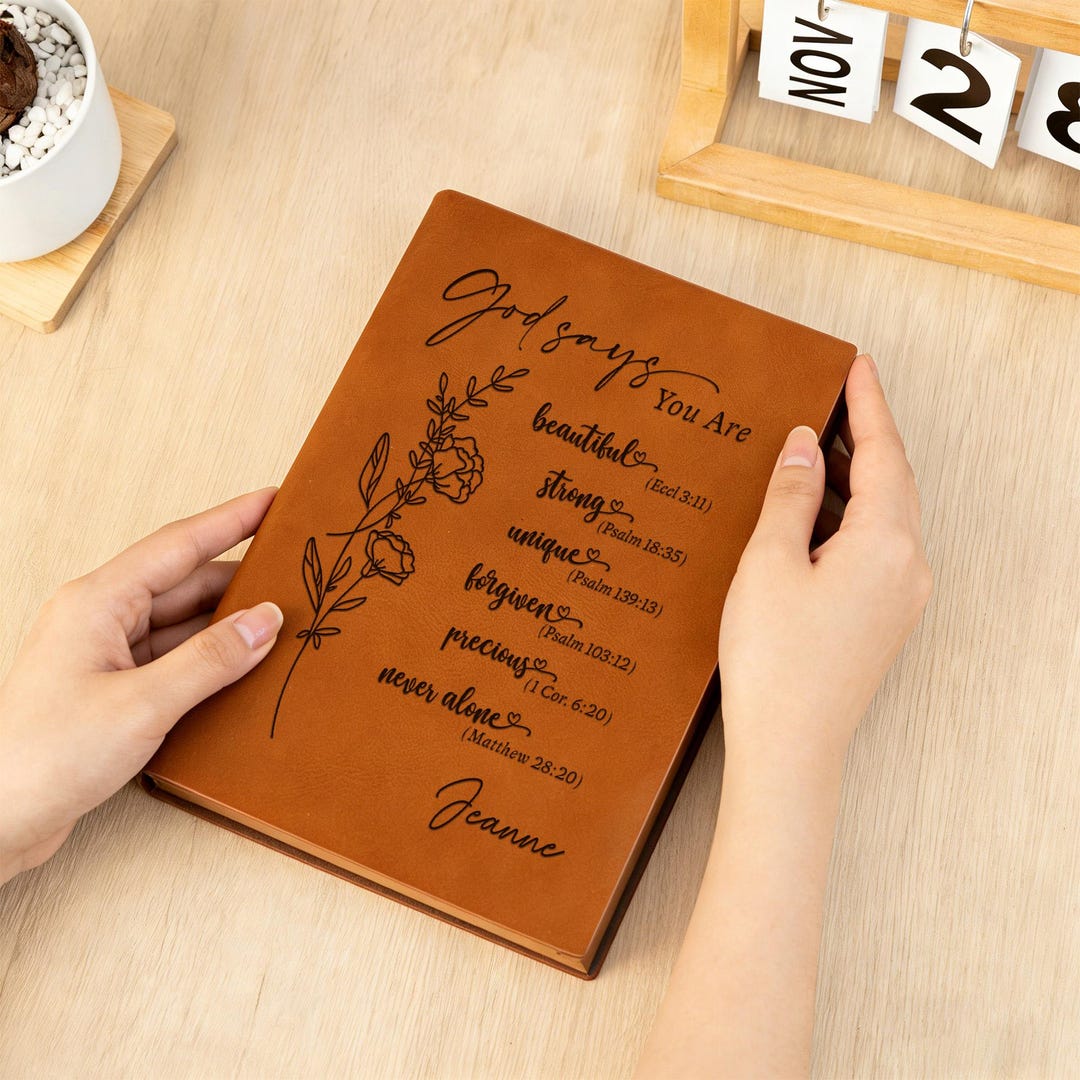 NOV 2 8
God says
You Are
beautiful
(Eccl 3:11)
strong
(Psalm 18:35)
unique
(Psalm 139:13)
forgiven
(Psalm 103:12)
precious
(1 Cor. 6:20)
never alone
(Matthew 28:20)
Jeanne